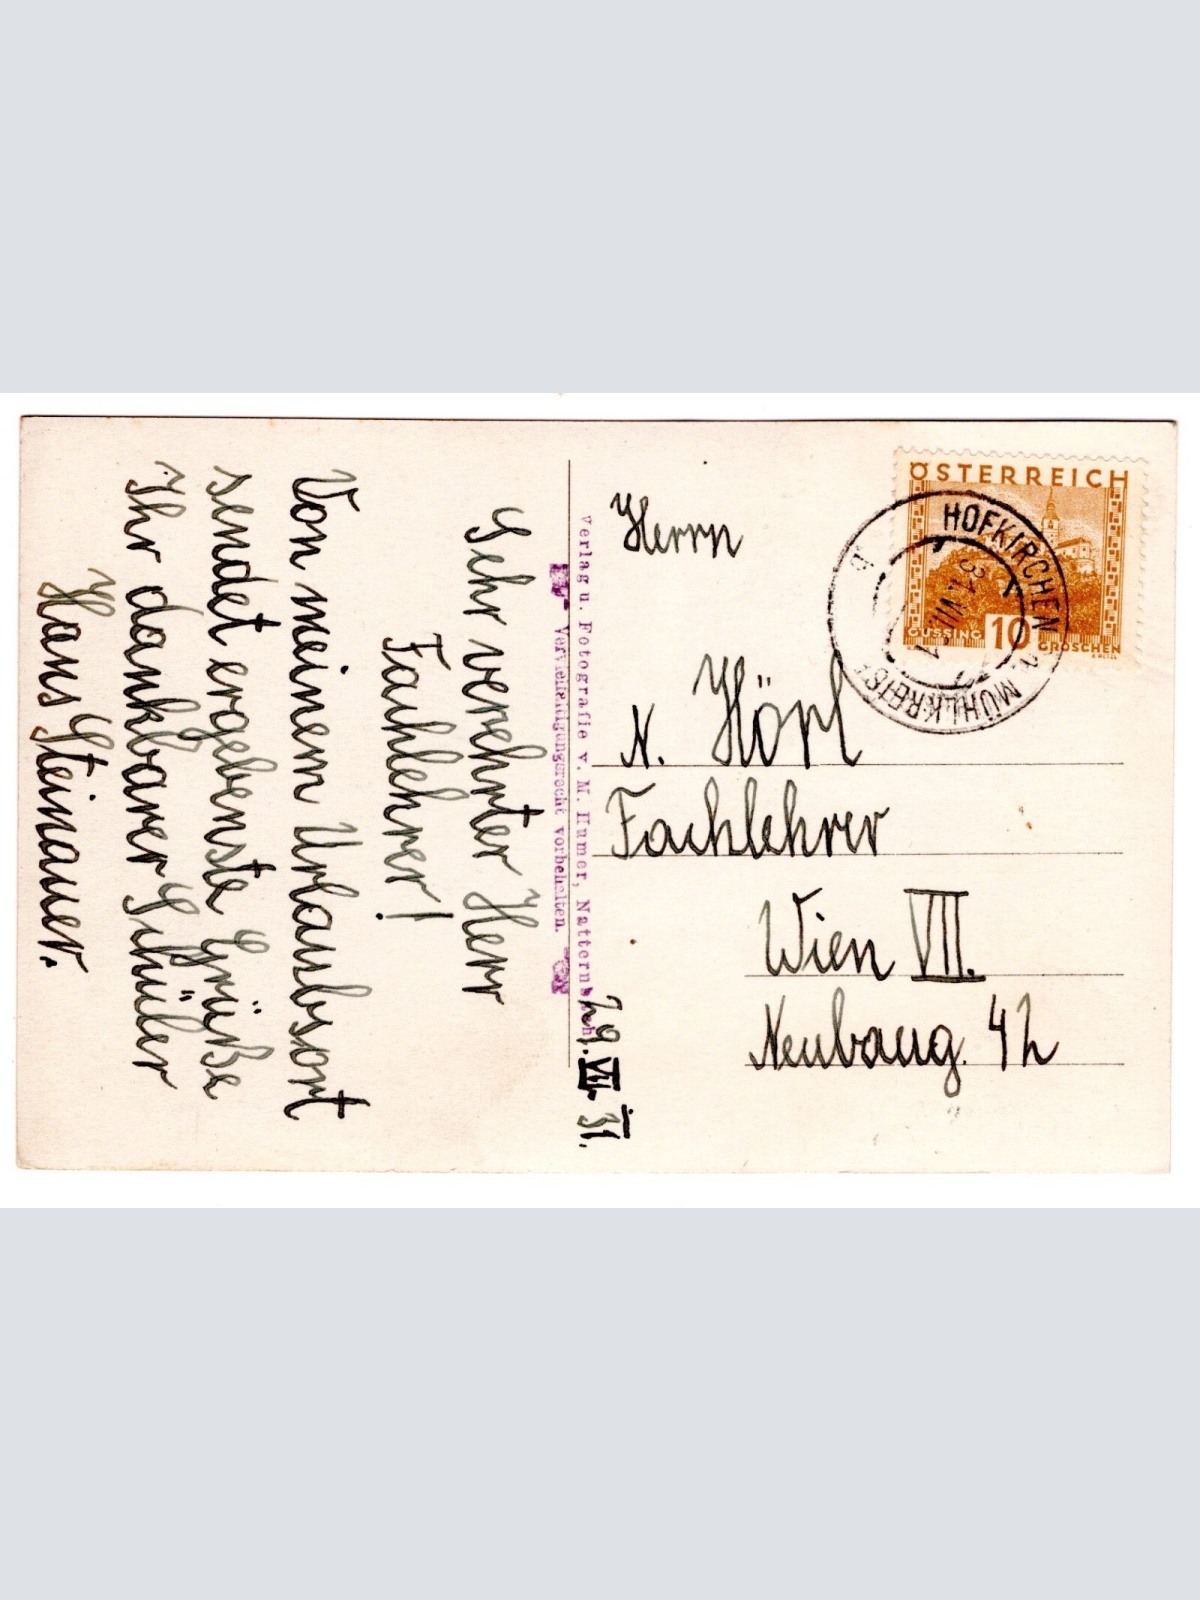 Sehr verehrter Herr
Fachlehrer!
Von meinem Urlaubsort
sendet ergebenste Grüße
Ihr dankbarer Schüler
Hans Steinauer.
29. VII. 31.
Verlag u. Fotografie v. M. Humer, Natternbach
Vervielfältigungsrecht vorbehalten.
ÖSTERREICH
GÜSSING 10 GROSCHEN
HOFKIRCHEN
MÜHLKREIS
31.VII.
a
Herrn
N. Hörl
Fachlehrer
Wien VII.
Neubaug. 42